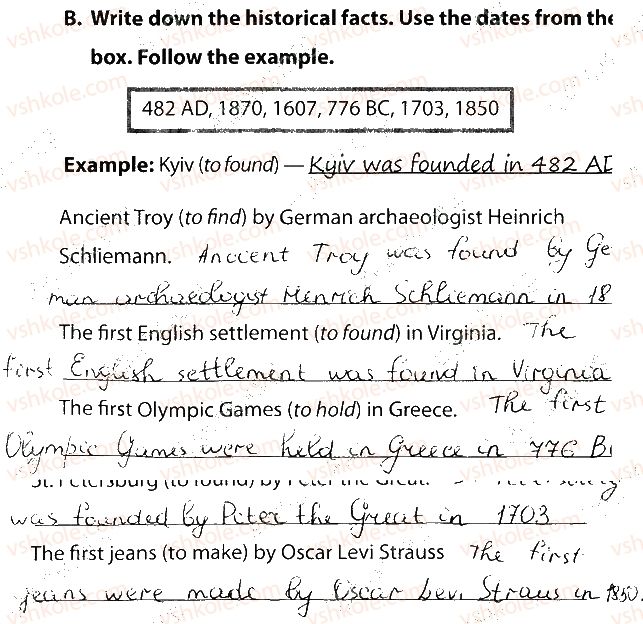 B. Write down the historical facts. Use the dates from the
box. Follow the example.
482 AD, 1870, 1607, 776 BC, 1703, 1850
Example: Kyiv (to found) — Kyiv was founded in 482 AD
Ancient Troy (to find) by German archaeologist Heinrich
Schliemann. Anccent Troy was found by Ge
man archaeologist Henrich Schliemann in 18
The first English settlement (to found) in Virginia. The
first English settlement was found in Virginia
The first Olympic Games (to hold) in Greece. The first
Olympic Games were held in Greece in 776 B
St. Petersburg (to found) by Peter the Great.
was founded by Peter the Great in 1703
The first jeans (to make) by Oscar Levi Strauss The first
jeans were made by Oscar Levi Straus in 1850.